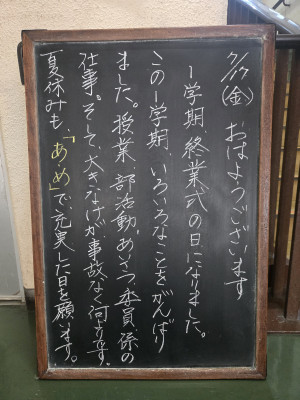 7/17(金) おはようございます
1学期終業式の日になりました。
この1学期、いろいろなことをがんばり
ました。授業、部活動、あいさつ、委員、係の
仕事。そして、大きなけが、事故なく何よりです。
夏休みも、「あ・め」で、充実した日を願います。